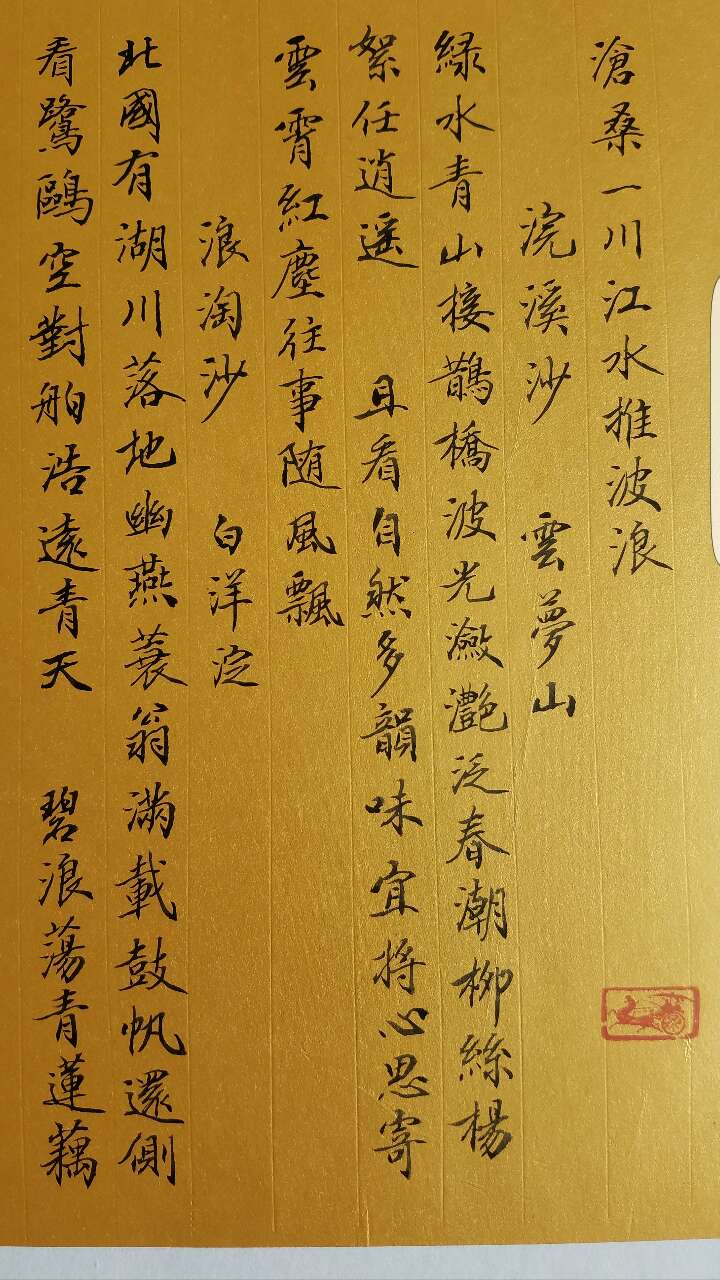 滄桑一川江水推波浪
浣溪沙 雲夢山
緑水青山接鵲橋波光瀲灧泛春潮柳絲楊
絮任逍遥 且看自然多韻味宜將心思寄
雲霄紅塵往事随風飄
浪淘沙 白洋淀
北國有湖川落地幽燕蓑翁滿載鼓帆還側
看鷺鷗空對舶浩遠青天 碧浪蕩青蓮藕